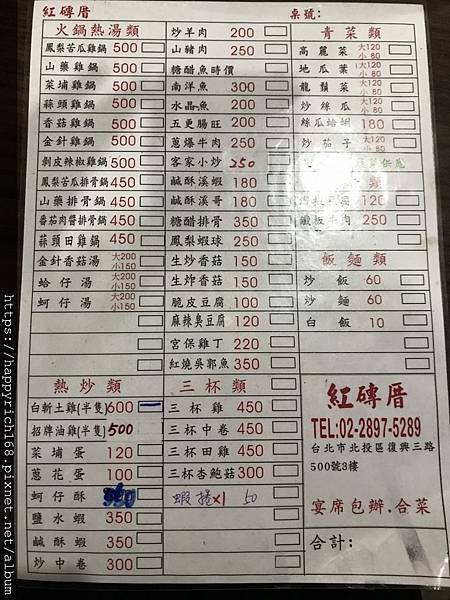 紅磚厝
桌號:
火鍋熱湯類
鳳梨苦瓜雞鍋 500
山藥雞鍋 500
菜埔雞鍋 500
蒜頭雞鍋 500
香菇雞鍋 500
金針雞鍋 500
剝皮辣椒雞鍋 500
鳳梨苦瓜排骨鍋 450
山藥排骨鍋 450
番茄肉醬排骨鍋 450
蒜頭田雞鍋 450
金針香菇湯 大200 小150
蛤仔湯 大200 小150
蚵仔湯 大200 小150
熱炒類
白斬土雞(半隻) 600
招牌油雞(半隻) 500
菜埔蛋 120
蔥花蛋 100
蚵仔酥
鹽水蝦 350
鹹酥蝦 350
炒中卷 300
炒羊肉 200
山豬肉 250
糖醋魚時價
南洋魚 300
水晶魚 200
五更腸旺 200
蔥爆牛肉 250
客家小炒 250
鹹酥溪蝦 180
鹹酥溪哥 180
糖醋排骨 350
鳳梨蝦球 250
生炒香菇 150
生炸香菇 150
脆皮豆腐 100
麻辣臭豆腐 120
宮保雞丁 220
紅燒吳郭魚 350
三杯類
三杯雞 450
三杯中卷 450
三杯田雞 450
三杯杏鮑菇 300
蝦捲x1 50
青菜類
高麗菜 大120 小80
地瓜葉 大120 小80
龍鬚菜 大120 小80
炒絲瓜 大120 小80
絲瓜蛤蜊 180
炒茄子 大120 小80
類
120
鐵板牛肉 250
飯麵類
炒飯 60
炒麵 60
白飯 10
紅磚厝
TEL:02-2897-5289
台北市北投區復興三路
500號3樓
宴席包辦.合菜
合計:
https://happyrich168.pixnet.net/album